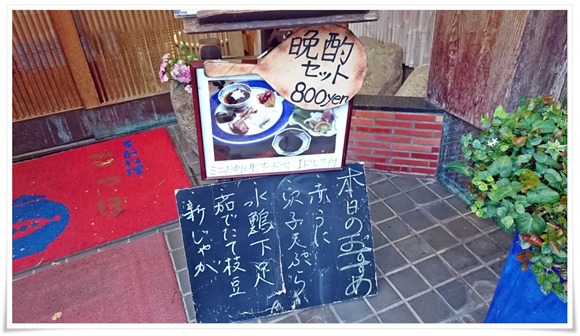 晩酌
セット
800yen
1ドリンク付
本日のおすすめ
赤うに
穴子天ぷら
下足
茹でたて枝豆
新じゃが